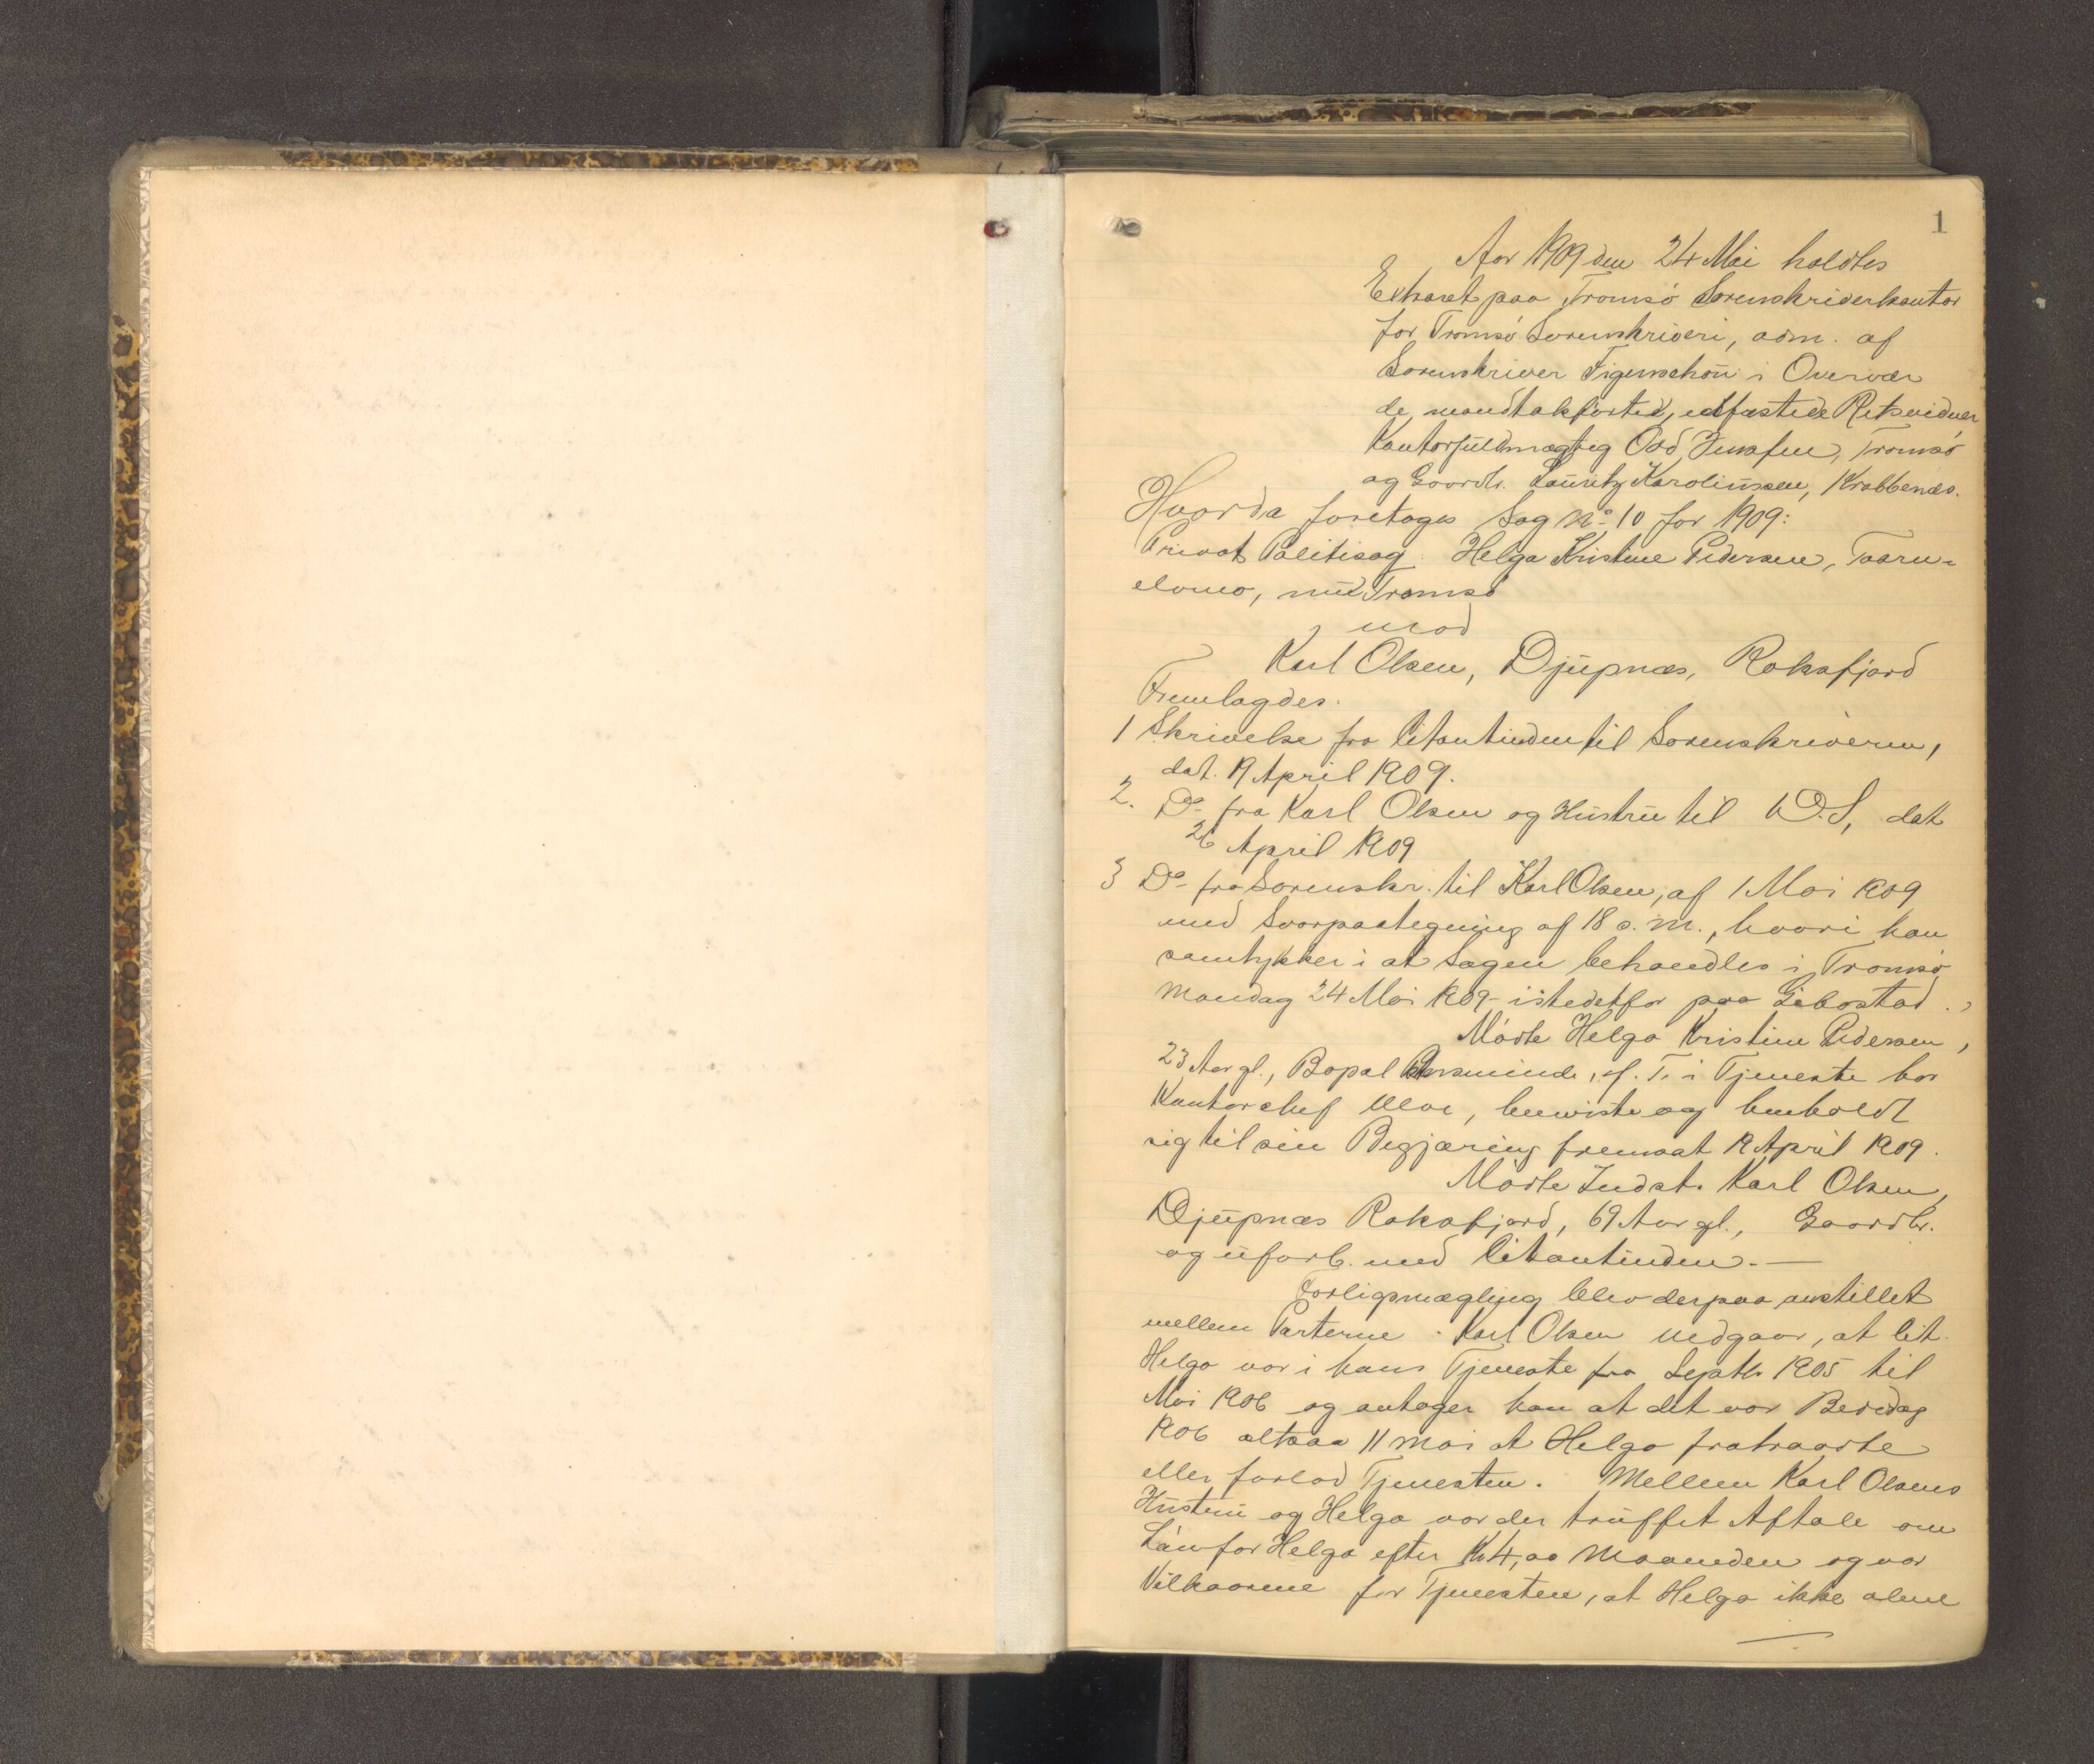 1
Aar 1909 den 24 Mai holdtes
Extraret paa Tromsø Sorenskriverkontor
for Tromsø Sorenskriveri, adm. af
Sorenskriver Figenschou i Overvær
de mandtalsførte, edfæstede Retsvidner
Kontorfuldmægtig Jensen, Tromsø
og Gaardb. Lauritz Karoliussen, Krabbenæs.
Hvorda foretoges Sag No 10 for 1909:
Privat Politisag. Helga Kristine Pedersen, Taarn-
elvmo, nu Tromsø
mod
Karl Olsen, Djupnæs, Raksfjord
Fremlagdes.
1 Skrivelse fra Citantinden til Sorenskriveren,
dat. 19 April 1909.
2. Do fra Karl Olsen og Hustru til D.S, dat
26 April 1909
3 Do fra Sorenskr. til Karl Olsen, af 1 Mai 1909
med Svarpaategning af 18 s. M., hvori han
samtykker i at Sagen behandles i Tromsø
Mandag 24 Mai 1909 istedetfor paa Gibostad.
Mødte Helga Kristine Pedersen,
23 Aar gl., Bopal f. T. i Tjeneste hos
Kontorchef Moe, henviste og henholdt
sig til sin Begjæring fremsat 19 April 1909.
Mødte Indst. Karl Olsen,
Djupnæs Raksfjord, 69 Aar gl., Gaardbr.
og uforb. med Citantinden. —
Forligsmægling blev derpaa anstillet
mellem Parterne. Karl Olsen vedgaar, at Cit.
Helga var i hans Tjeneste fra Septb. 1905 til
Mai 1906 og antager han at det var Bededag
1906 altsaa 11 Mai at Helga fratraadte
eller forlod Tjenesten. Mellem Karl Olsens
Hustru og Helga var der truffet Aftale om
Løn for Helga efter Kr 4,00 Maaneden og var
Vilkaarene for Tjenesten, at Helga ikke alene